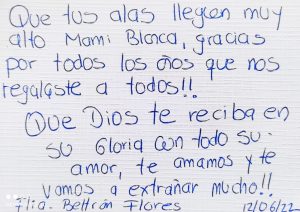 Que tus alas lleguen muy
alto Mami Blanca, gracias
por todos los años que nos
regalaste a todos!!
Que Dios te reciba en
su Gloria con todo su
amor, te amamos y te
vamos a extrañar mucho!!
Flia. Beltrán Flores 12/06/22